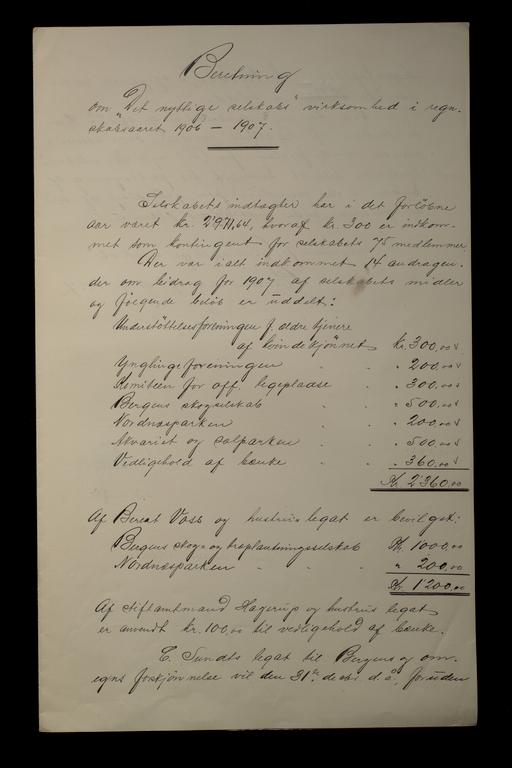 Beretning
om "Det nyttige selskabs" virksomhed i regn-
skabsaaret 1906 — 1907.
Selskabets indtægter har i det forløbne
aar været kr. 2'971,64, hvoraf kr. 300 er indkom-
met som kontingent for selskabets 75 medlemmer.
Der var ialt indkommet 14 andragen-
der om bidrag for 1907 af selskabets midler
og følgende beløb er uddelt:
Understøttelsesforeningen f. ældre tjenere
af kvindekjønnet kr. 300,00
Ynglingeforeningen " 200,00
Komiteen for off. legepladse " 300,00
Bergens skogselskab " 500,00
Nordnæsparken " 200,00
Akvariet og solparken " 500,00
Vedligehold af bænke " 360,00
Kr. 2'360,00
Af Berent Voss og hustrus legat er bevilget:
Bergens skog- og træplantningsselskab Kr. 1000,00
Nordnæsparken " 200,00
Kr. 1'200,00
Af stiftamtmand Hagerup og hustrus legat
er anvendt kr. 100,00 til vedligehold af bænke.
C. Sundts legat til Bergens og om-
egns forskjønnelse vil den 31te decbr. d.å. foruden